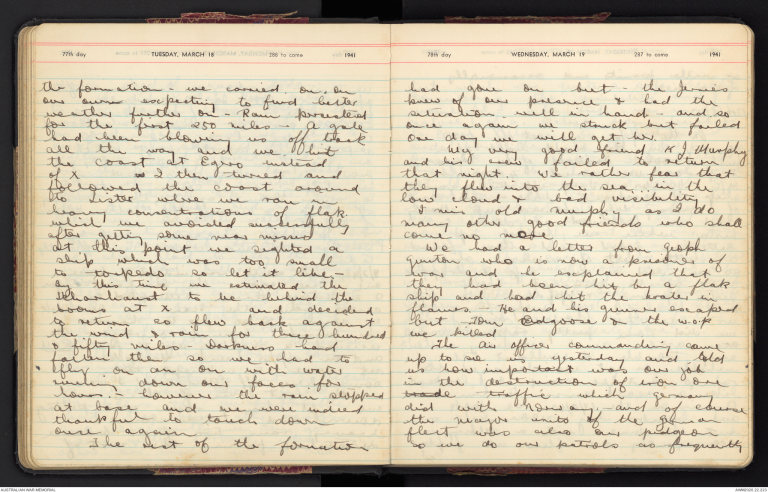 77th day TUESDAY, MARCH 18 288 to come 1941
the formation - we carried on on
our own expecting to find better
weather further on - Rain persisted
for the first 250 miles - A gale
had been blowing us off track
all the way and we hit
the coast at Egero instead
of X I then turned and
followed the coast around
to Lister where we ran in
heavy concentrations of flak
which we avoided successfully
after getting some near misses
at this point we sighted a
ship which was too small
to torpedo so let it like -
by this time we estimated the
Scharnhaust to be behind the
booms at X and decided
to return so flew back against
the wind & rain for three hundred
& fifty miles. Darkness had
fallen then so we had to
fly on on on with water
running down our faces for
hours - however the rain stopped
at base and we were indeed
thankful to touch down
once again
The rest of the formation
78th day WEDNESDAY, MARCH 19 287 to come 1941
had gone on but - the Jerries
knew of our presence & had the
situation well in hand - and so
once again we struck but failed
one day we will get her.
My very good friend K J Murphy
and his crew failed to return
that night. We rather fear that
they flew into the sea in the
low cloud & bad visibility
I miss old Murphy as I do
many other good friends who shall
come no more
We had a letter from Geoph
who is now a prisoner of
war and he explained that
they had been hit by a flak
ship and had hit the water in
flames - He and his gunner escaped
but Tom & the w.o.p
we killed
The Air officer commanding came
up to see us yesterday and told
us how important was our job
in the destruction of iron ore
trade traffic which Germany
did with Norway - and of course
the major units of the German
fleet was also our pidgeon
so we do our patrols as frequently
AUSTRALIAN WAR MEMORIAL